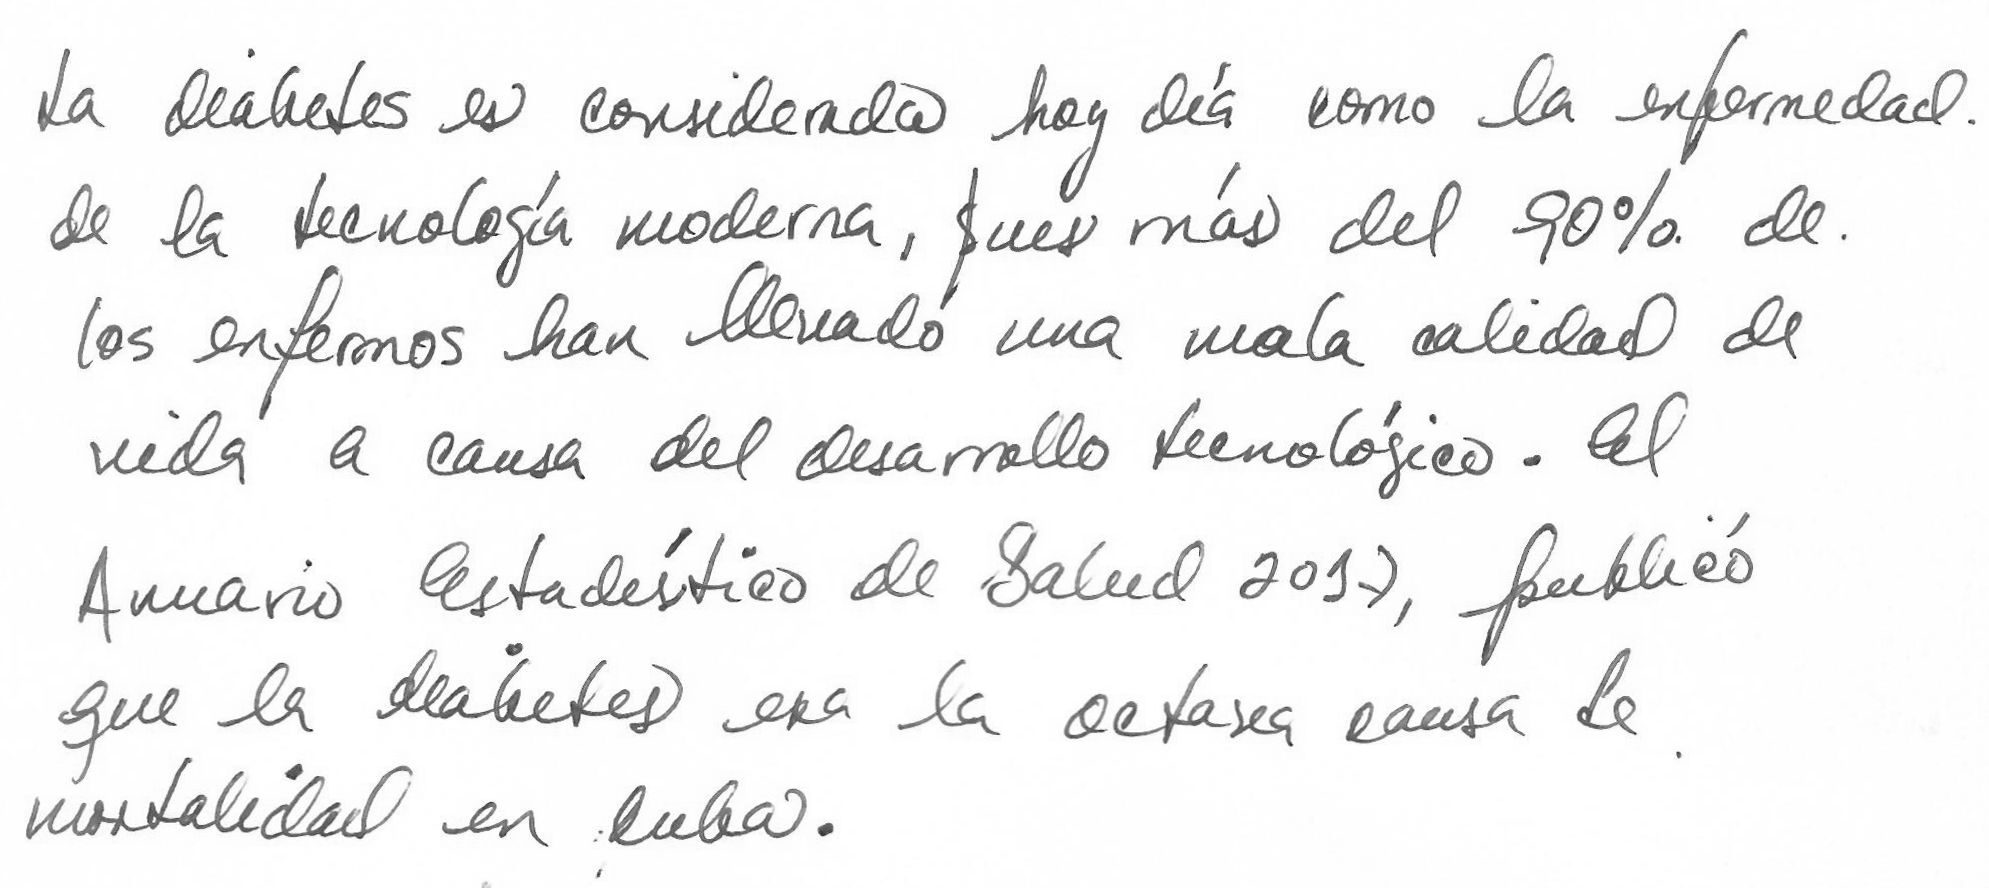 La diabetes es considerada hoy día como la enfermedad.
de la tecnología moderna, pues más del 90% de.
los enfermos han llevado una mala calidad de
vida a causa del desarrollo tecnológico. El
Anuario Estadístico de Salud 2017, publicó
que la diabetes era la octava causa de
mortalidad en Cuba.